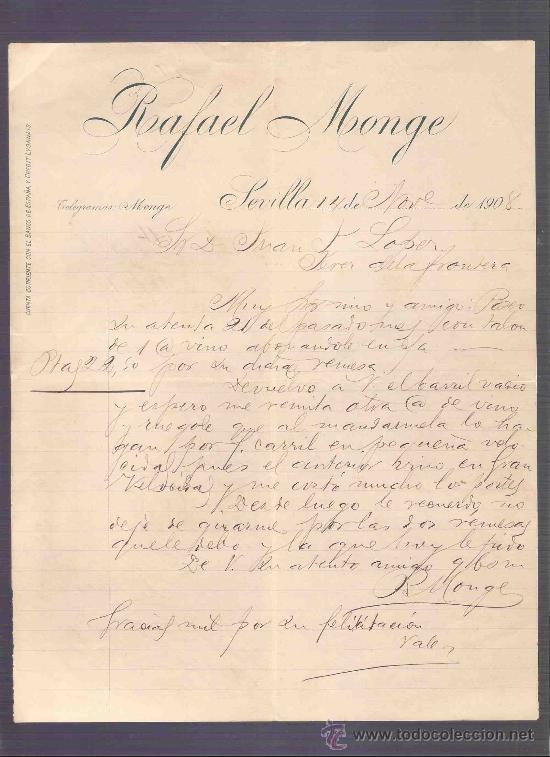 Rafael Monge
CUENTA CORRIENTE CON EL BANCO DE ESPAÑA Y CREDIT LYONNAIS
Telegramas: Monge
Sevilla 14 de Nove de 1908.
Sr D. Juan J. Lopez
Jerez de la frontera
Muy Sor mio y amigo: Poseo
su atenta 21 del pasado mes con talon
de 1 Ca vino abonandole en c/a
Ptas 22,50 por su dicha remesa.
Devuelvo a V el barril vacio
y espero me remita otra Ca de vino
y ruegole que al mandarmela lo ha-
gan por f. carril en pequeña velo-
cidad, pues el anterior vino en gran
Velocidad y me costo mucho los portes
Desde luego le recuerdo no
deje de girarme por las dos remesas
que le debo y la que hoy le pido
De V. su atento amigo q b s m
R Monge
Gracias mil por su felicitación
Vale
www.todocoleccion.net